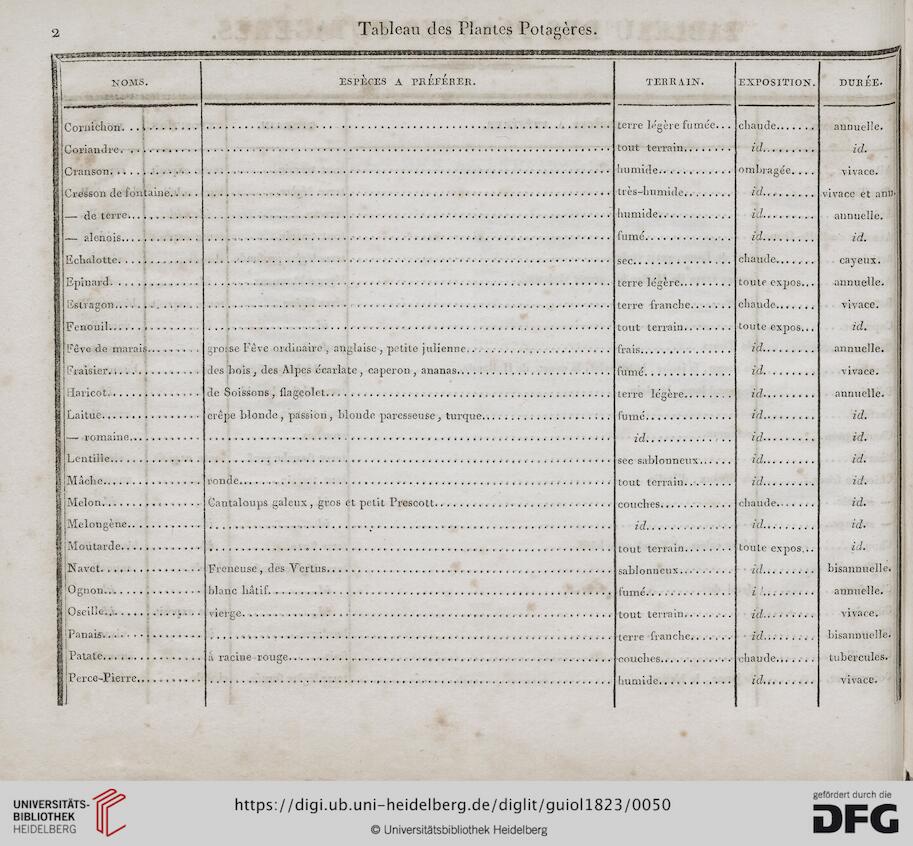 2
Tableau des Plantes Potagères.
NOMS. ESPÈCES A PRÉFÉRER. TERRAIN. EXPOSITION. DURÉE.
Cornichon. terre légère fumée... chaude....... annuelle.
Coriandre. tout terrain........ id......... id.
Cranson. humide............ ombragée.... vivace.
Cresson de fontaine. très-humide........ id......... vivace et ann.
— de terre. humide............ id......... annuelle.
— alenois. fumé.............. id......... id.
Echalotte. sec................ chaude....... cayeux.
Epinard. terre légère........ toute expos... annuelle.
Estragon. terre franche....... chaude....... vivace.
Fenouil. tout terrain........ toute expos... id.
Fêve de marais. grosse Fêve ordinaire, anglaise, petite julienne. frais.............. id......... annuelle.
Fraisier. des bois, des Alpes écarlate, caperon, ananas. fumé.............. id......... vivace.
Haricot. de Soissons, flageolet. terre légère........ id......... annuelle.
Laitue. crêpe blonde, passion, blonde paresseuse, turque. fumé.............. id......... id.
— romaine. id............. id......... id.
Lentille. sec sablonneux...... id......... id.
Mâche. ronde. tout terrain........ id......... id.
Melon. Cantaloups galeux, gros et petit Prescott. couches............ chaude....... id.
Melongène. id............. id......... id.
Moutarde. tout terrain........ toute expos... id.
Navet. Freneuse, des Vertus. sablonneux........ id......... bisannuelle.
Ognon. blanc hâtif. fumé.............. i ......... annuelle.
Oseille. vierge. tout terrain........ id......... vivace.
Panais. terre franche....... id......... bisannuelle.
Patate. à racine rouge. couches............ chaude....... tubercules.
Perce-Pierre. humide............ id......... vivace.
UNIVERSITÄTS-
BIBLIOTHEK
HEIDELBERG
https://digi.ub.uni-heidelberg.de/diglit/guiol1823/0050
© Universitätsbibliothek Heidelberg
gefördert durch die
DFG